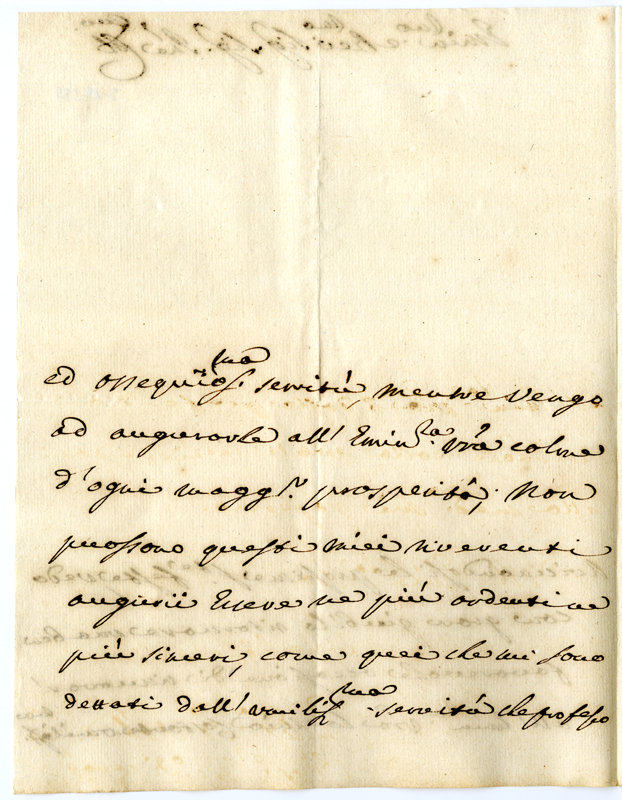 ed ossequiosma servitù, mentre vengo
ad augurarle all' Eminza. vra colme
d'ogni maggr. prosperità; Non
possono questi miei riverenti
augurii essere ne più ardenti ne
più sinceri, come quei che mi sono
dettati dall' umilisma servitù che professo